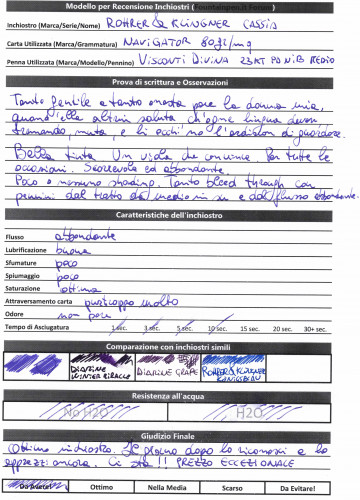 Modello per Recensione Inchiostri (Fountainpen.it Forum)
Inchiostro (Marca/Serie/Nome) ROHRER & KLINGNER CASSIA
Carta Utilizzata (Marca/Grammatura) NAVIGATOR 80 gr/mq
Penna Utilizzata (Marca/Modello/Pennino) VISCONTI DIVINA 23KT PD NIB MEDIO
Prova di scrittura e Osservazioni
Tanto gentile e tanto onesta pare la donna mia,
quand'ella altrui saluta ch'ogne lingua deven
tremando, muta, e li occhi no l'ardiscon di guardare.
Bella tinta. Un viola che conviene per tutte le
occasioni. Scorrevole ed abbondante.
Poco o nessuno shading. Tanto bleed through con
pennini dal tratto dal medio in su e dal flusso abbondante.
Caratteristiche dell'inchiostro
Flusso abbondante
Lubrificazione buona
Sfumature poco
Spiumaggio poco
Saturazione ottima
Attraversamento carta purtroppo molto
Odore non pare
Tempo di Asciugatura 1 sec. 3 sec. 5 sec. 10 sec. 15 sec. 20 sec. 30+ sec.
Comparazione con inchiostri simili
DIAMINE WINTER MIRACLE
DIAMINE GRAPE
ROHRER & KLINGNER KÖNIGSBLAU
Resistenza all'acqua
No H2O H2O
Giudizio Finale
Ottimo inchiostro. Lo provo dopo lo riconosci e lo
apprezzi ancora. Ce sta!! PREZZO ECCEZIONALE
Da Urlo! Ottimo Nella Media Scarso Da Evitare!